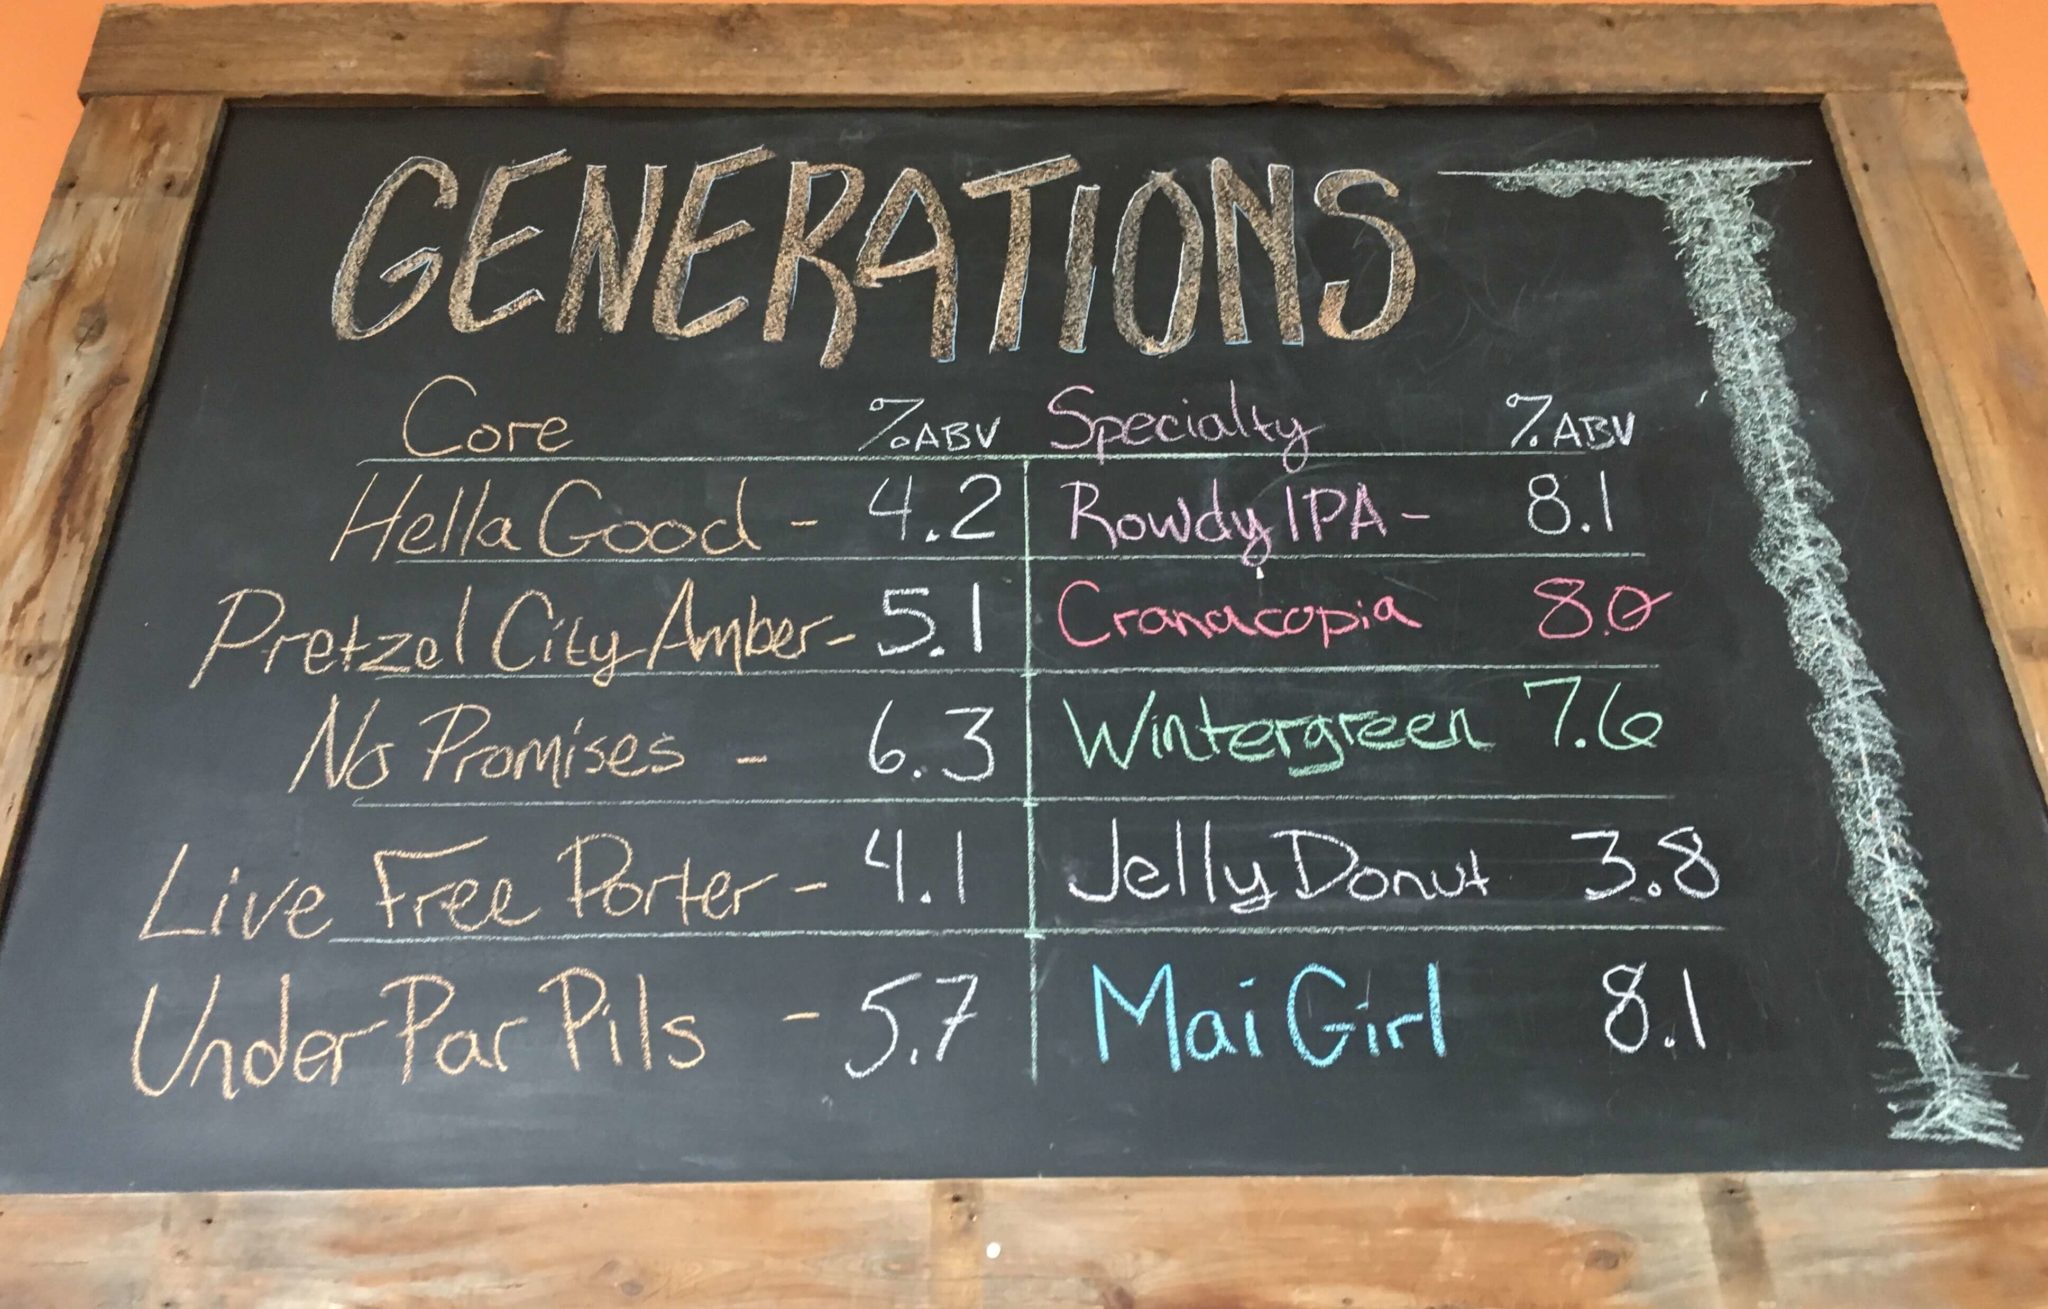 GENERATIONS
Core %ABV Specialty %ABV
Hella Good - 4.2 Rowdy IPA - 8.1
Pretzel City Amber - 5.1 Cranacopia 8.0
No Promises - 6.3 Wintergreen 7.6
Live Free Porter - 4.1 Jelly Donut 3.8
Under Par Pils - 5.7 Mai Girl 8.1